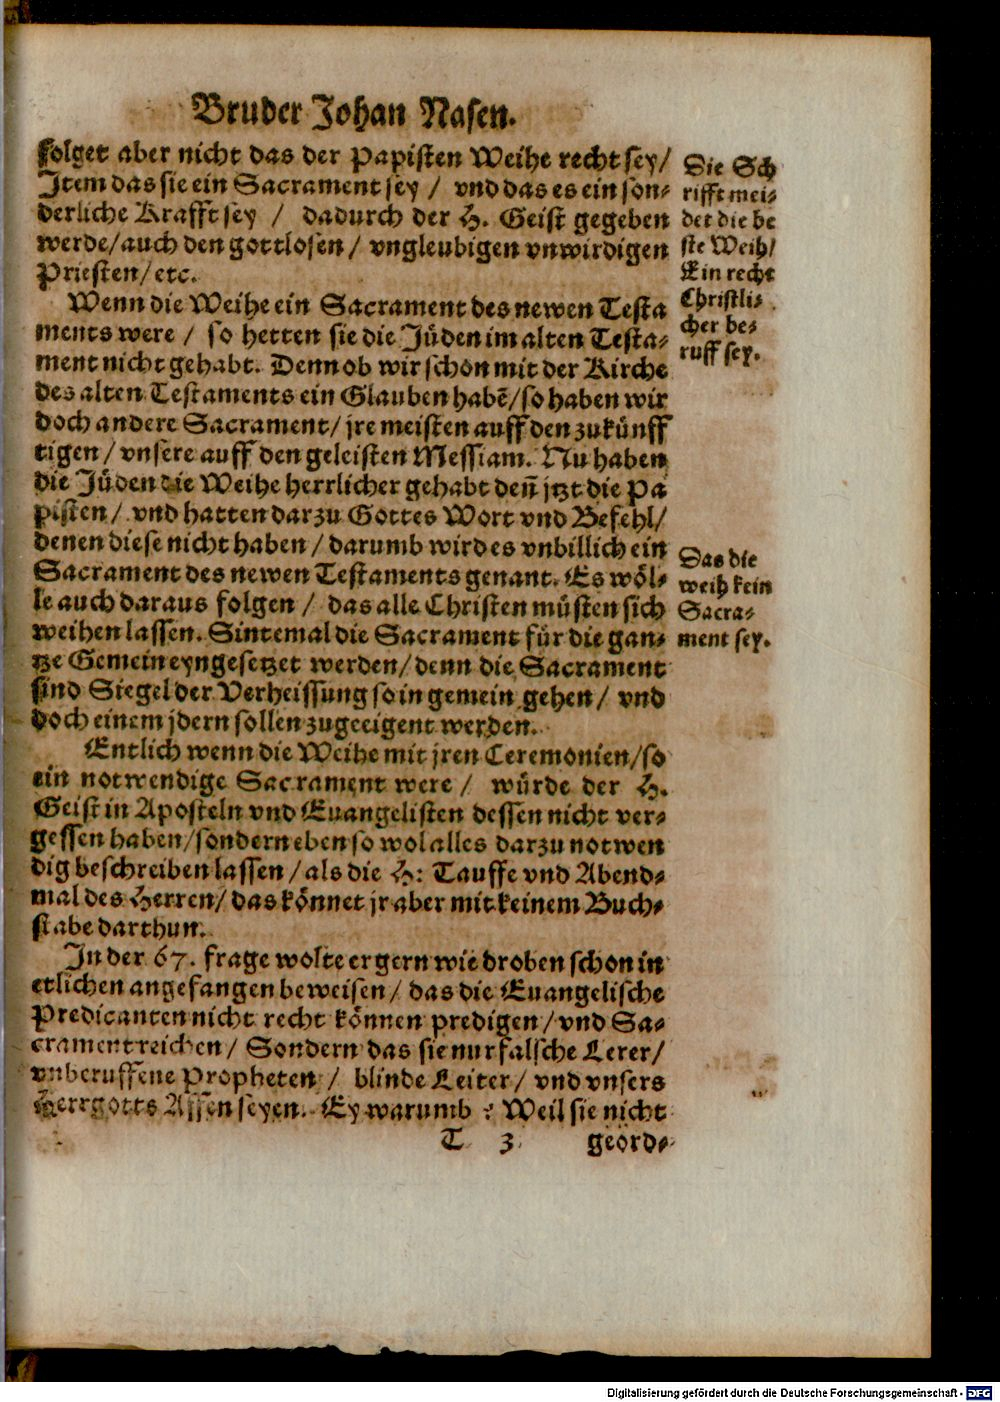 Bruder Johan Nasen.
folget aber nicht das der Papisten Weihe recht sey/
Item das sie ein Sacrament sey / vnd das es ein son-
derliche Krafft sey / dadurch der H. Geist gegeben
werde/auch den gottlosen/ vngleubigen vnwirdigen
Priesten/etc.
Wenn die Weihe ein Sacrament des newen Testa
ments were / so hetten sie die Jüden im alten Testa-
ment nicht gehabt. Denn ob wir schon mit der Kirche
des alten Testaments ein Glauben habē/so haben wir
doch andere Sacrament/ jre meisten auff den zukünff
tigen/ vnsere auff den geleisten Messiam. Nu haben
die Jüden die Weihe herrlicher gehabt deñ jtzt die Pa
pisten/ vnd hatten darzu Gottes Wort vnd Befehl/
denen diese nicht haben/ darumb wird es vnbillich ein
Sacrament des newen Testaments genant. Es wöl-
le auch daraus folgen / das alle Christen müsten sich
weihen lassen. Sintemal die Sacrament für die gan-
tze Gemein eyngesetzet werden/denn die Sacrament
sind Siegel der Verheissung so in gemein gehen/ vnd
doch einem jdern sollen zugeeigent werden.
Entlich wenn die Weihe mit jren Ceremonien/so
ein notwendige Sacrament were / würde der H.
Geist in Aposteln vnd Euangelisten dessen nicht ver-
gessen haben/sondern eben so wol alles darzu notwen
dig beschreiben lassen/als die H: Tauffe vnd Abend-
mal des Herren/das könnet jr aber mit keinem Buch-
stabe darthun.
In der 67. frage wolte er gern wie droben schon in
etlichen angefangen beweisen/ das die Euangelische
Predicanten nicht recht können predigen/vnd Sa-
crament reichen/ Sondern das sie nur falsche Lerer/
vnberuffene Propheten / blinde Leiter/ vnd vnsers
Herrgotts Affen seyen. Ey warumb ? Weil sie nicht
T 3 geörd-
Die Sch
rifft mei-
det die be
ste Weih/
Ein recht
Christli-
cher be-
ruff sey.
Das die
weih kein
Sacra-
ment sey.
Digitalisierung gefördert durch die Deutsche Forschungsgemeinschaft - DFG